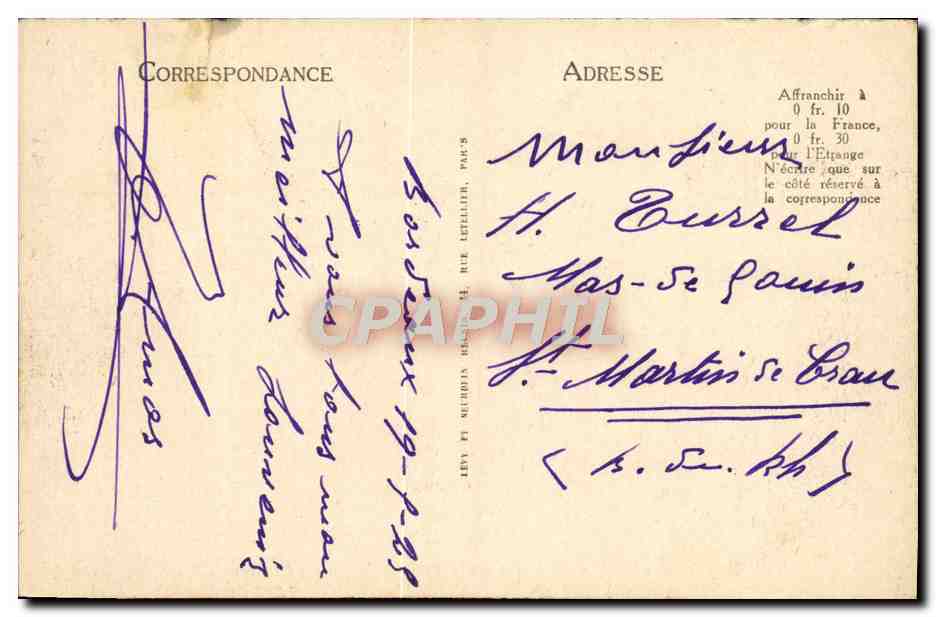 CORRESPONDANCE
ADRESSE
Affranchir à
0 fr. 10
pour la France,
0 fr. 30
pour l'Etrange
N'écrire que sur
le côté réservé à
la correspondance
Bordeaux 19-1-25
A vous tous mon
meilleur Souvenir
LÉVY ET NEURDEIN RÉUNIS, 44, RUE LETELLIER, PARIS
Monsieur
H. Turrel
Mas-de Gouin
St- Martin de Crau
(B. du. Rh)
CPAPHIL